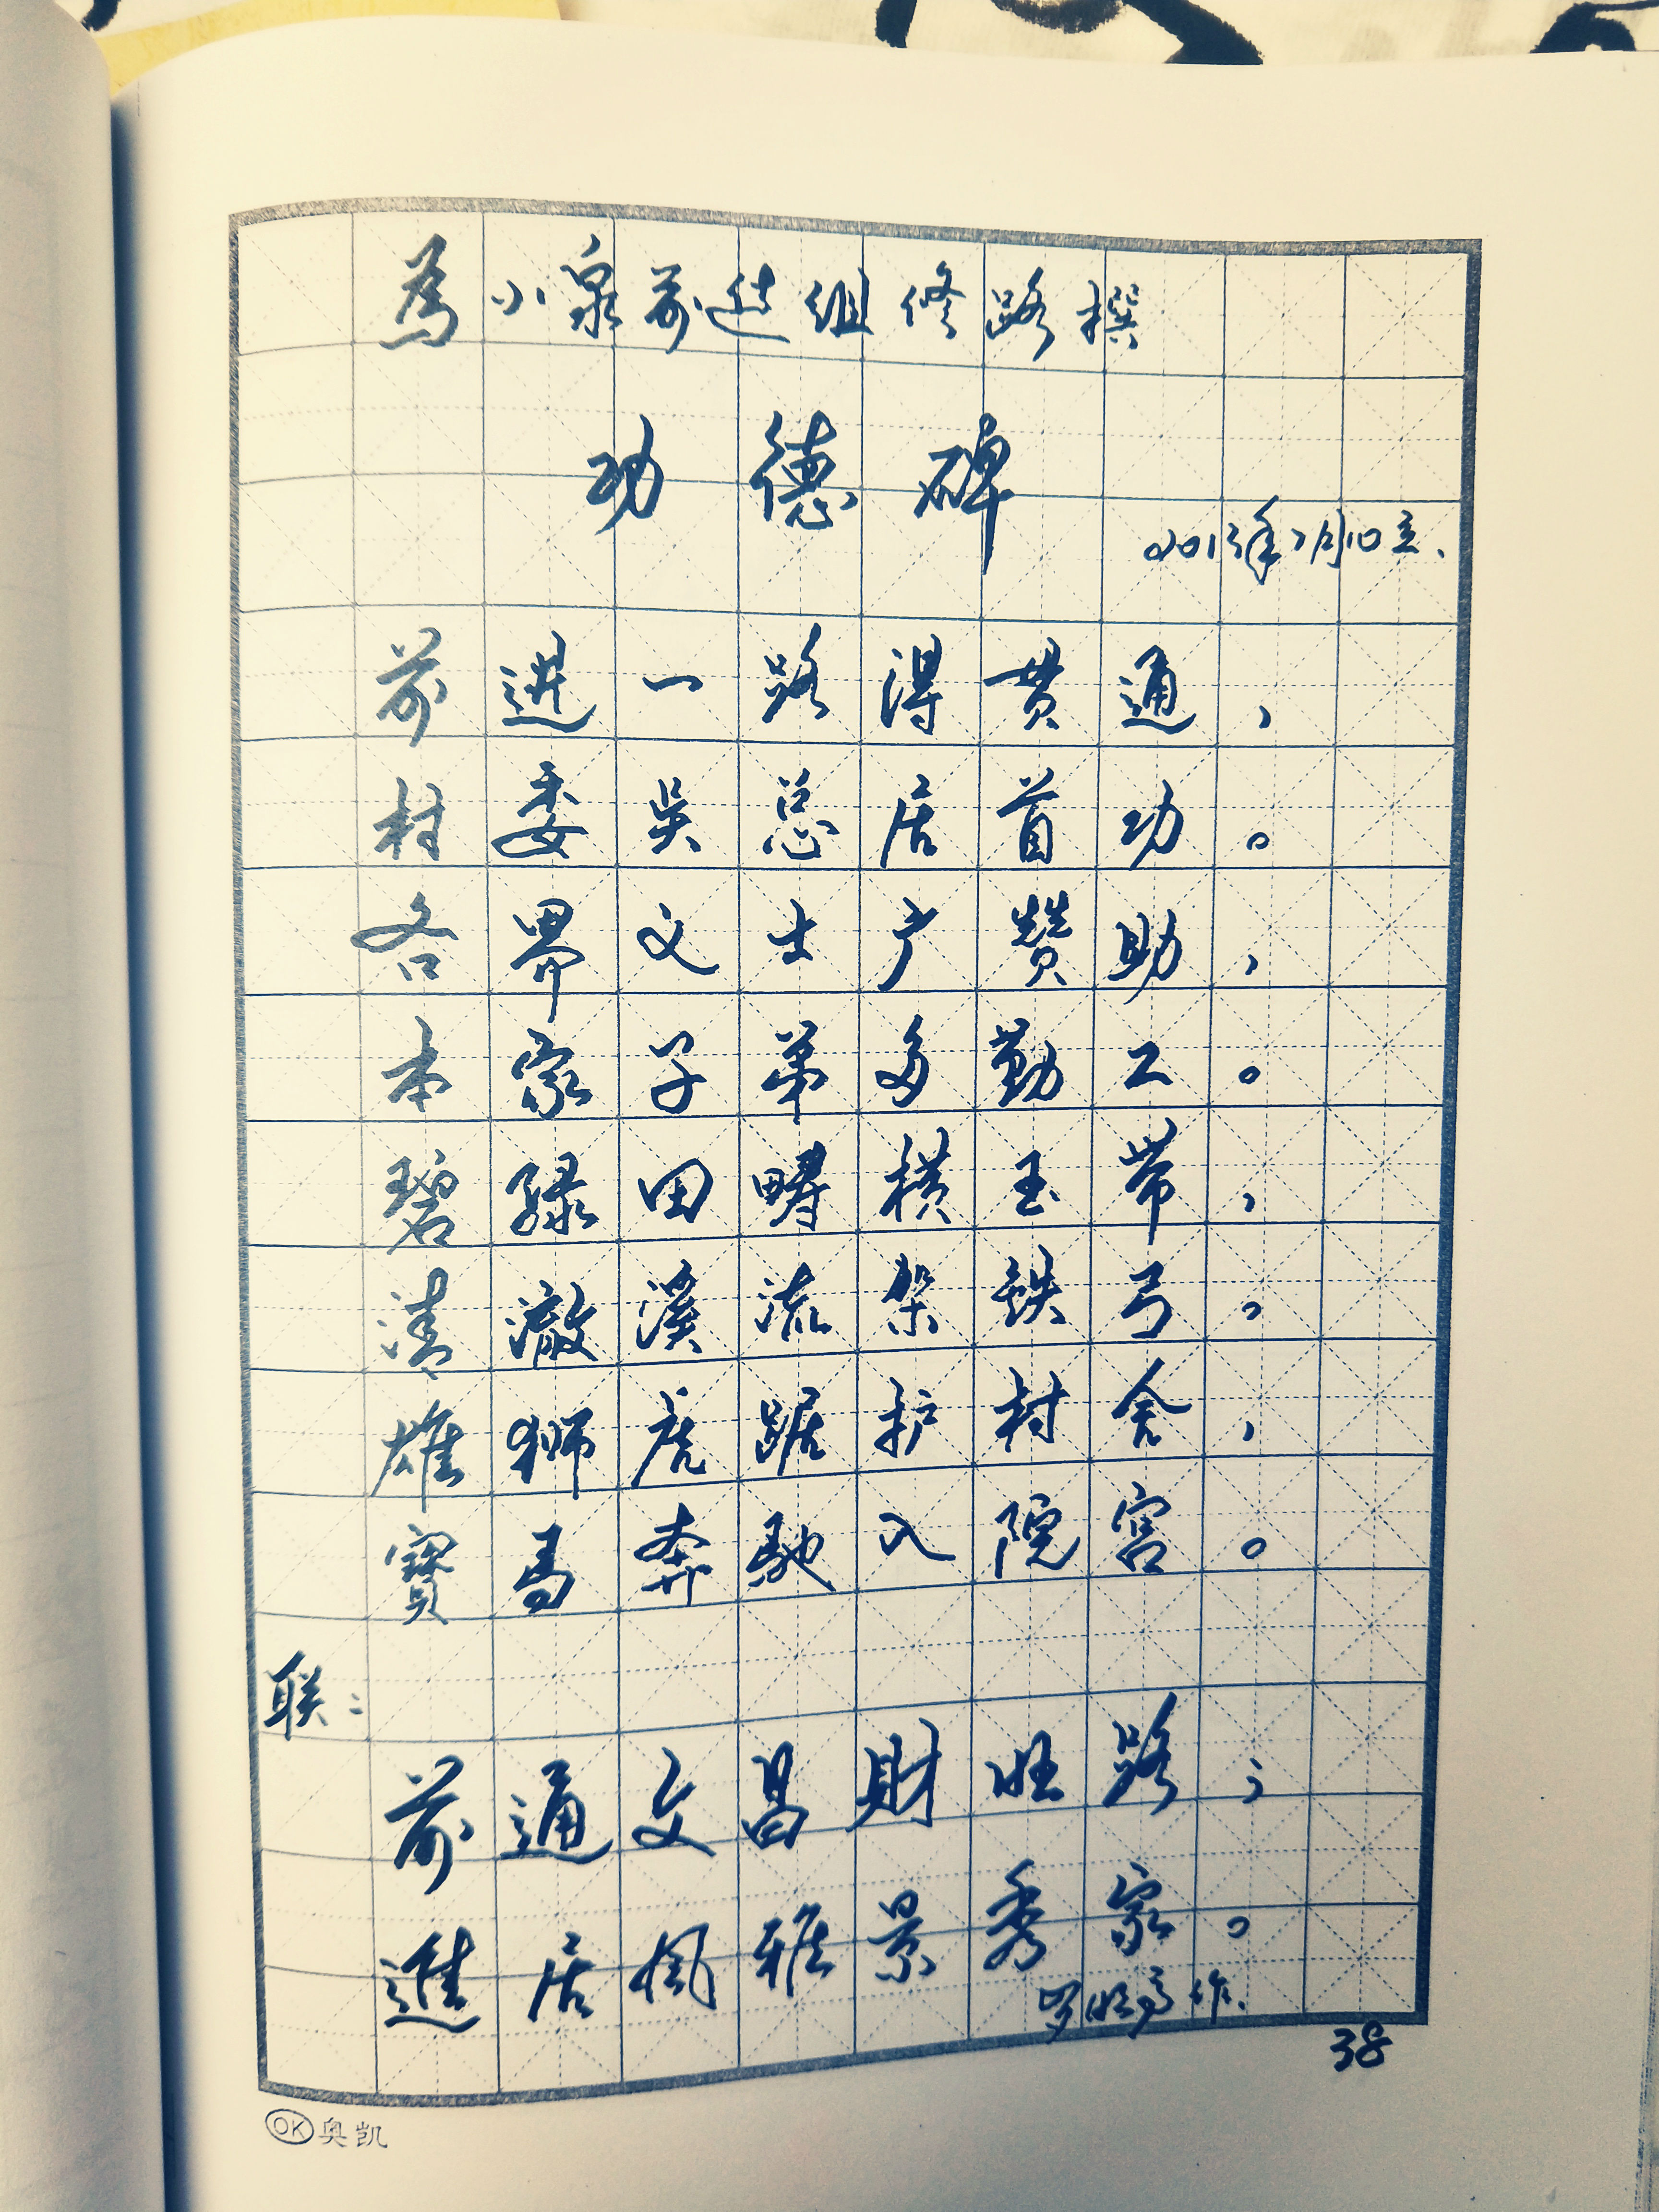 為小泉前进组修路撰
功德碑
2013年7月10立.
前進一路得贯通,
村委吴总居首功。
各界文士广赞助,
本家子弟多勤工。
碧绿田畴横玉带,
清澈溪流架铁弓。
雄狮虎踞护村舍,
寶馬奔馳入院宫。
联:
前通文昌財旺路;
進居楓雅景秀家。
罗旺 作.
38
OK 奥凯